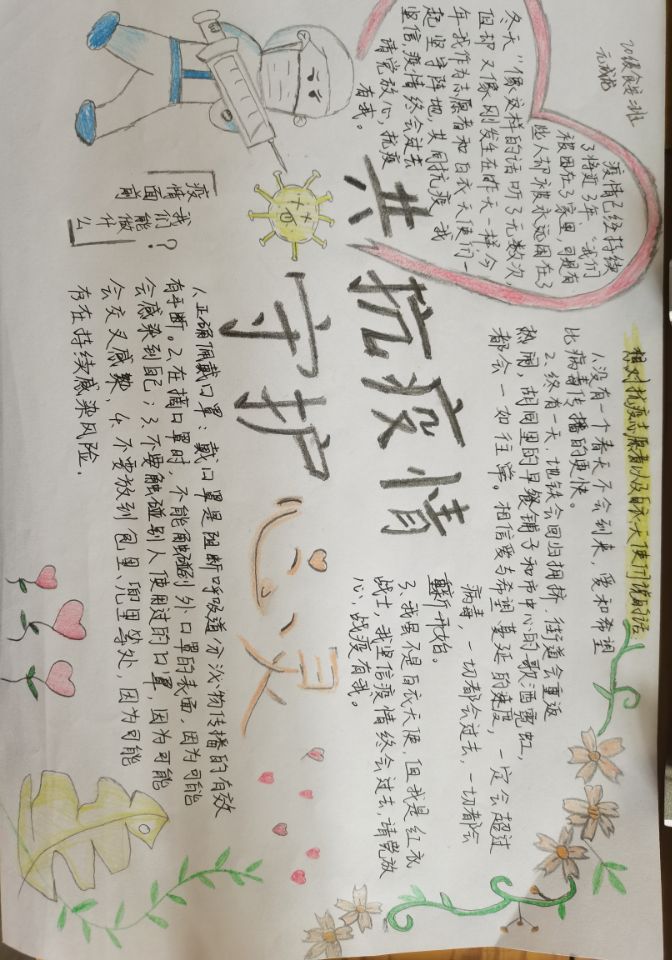 20级食安二班
疫情已经持续
了将近3年，“我们
被困在了家里，可是有
些人却被永远困在了
冬天”像这样的话听了无数次，
但却又像刚发生在昨天一样，今
年我作为志愿者和白衣天使们一
起坚守阵地，共同抗疫，我
坚信疫情终会过去
请党放心，抗疫
有我。
想对抗疫志愿者以及白衣天使们说的话
1、没有一个春天不会到来，爱和希望
比病毒传播的更快。
2、终有一天，地铁会回归拥挤，街道会重返
热闹，胡同里的早餐铺子和市中心的歌酒霓虹，
都会一如往常。相信爱与希望蔓延的速度，一定会超过
病毒，一切都会过去，一切都会
重新开始。
3、我虽不是白衣天使，但我是红衣
战士，我坚信疫情终会过去，请党放
心，战疫有我。
共抗疫情
守护心灵
「疫情面前
我们能做什么？」
1、正确佩戴口罩：戴口罩是阻断呼吸道分泌物传播的有效
有手断。2、在摘口罩时，不能触碰到外口罩的表面，因为可能
会感染到自己；3、不要触碰别人使用过的口罩，因为可能
会交叉感染、4、不要放到包里、兜里等处，因为可能
存在持续感染风险。